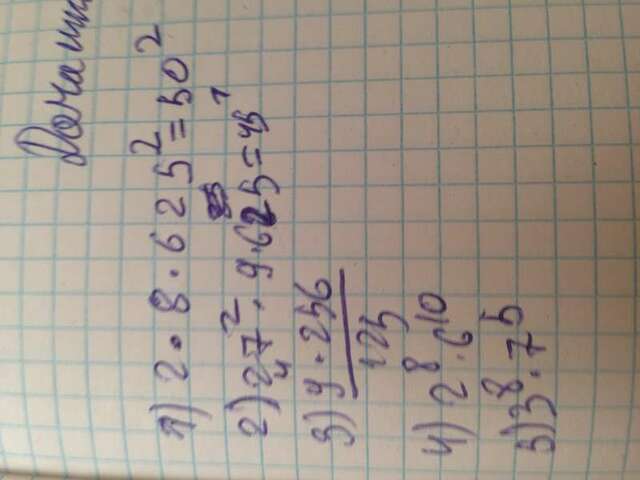 Домашн
1) 2 · 8 · 625² = 50²
2) 27² · 9 · 625 = 45¹
4
3) 9 · 256
125
4) 2⁸ · 6¹⁰
5) 3⁸ · 7⁵